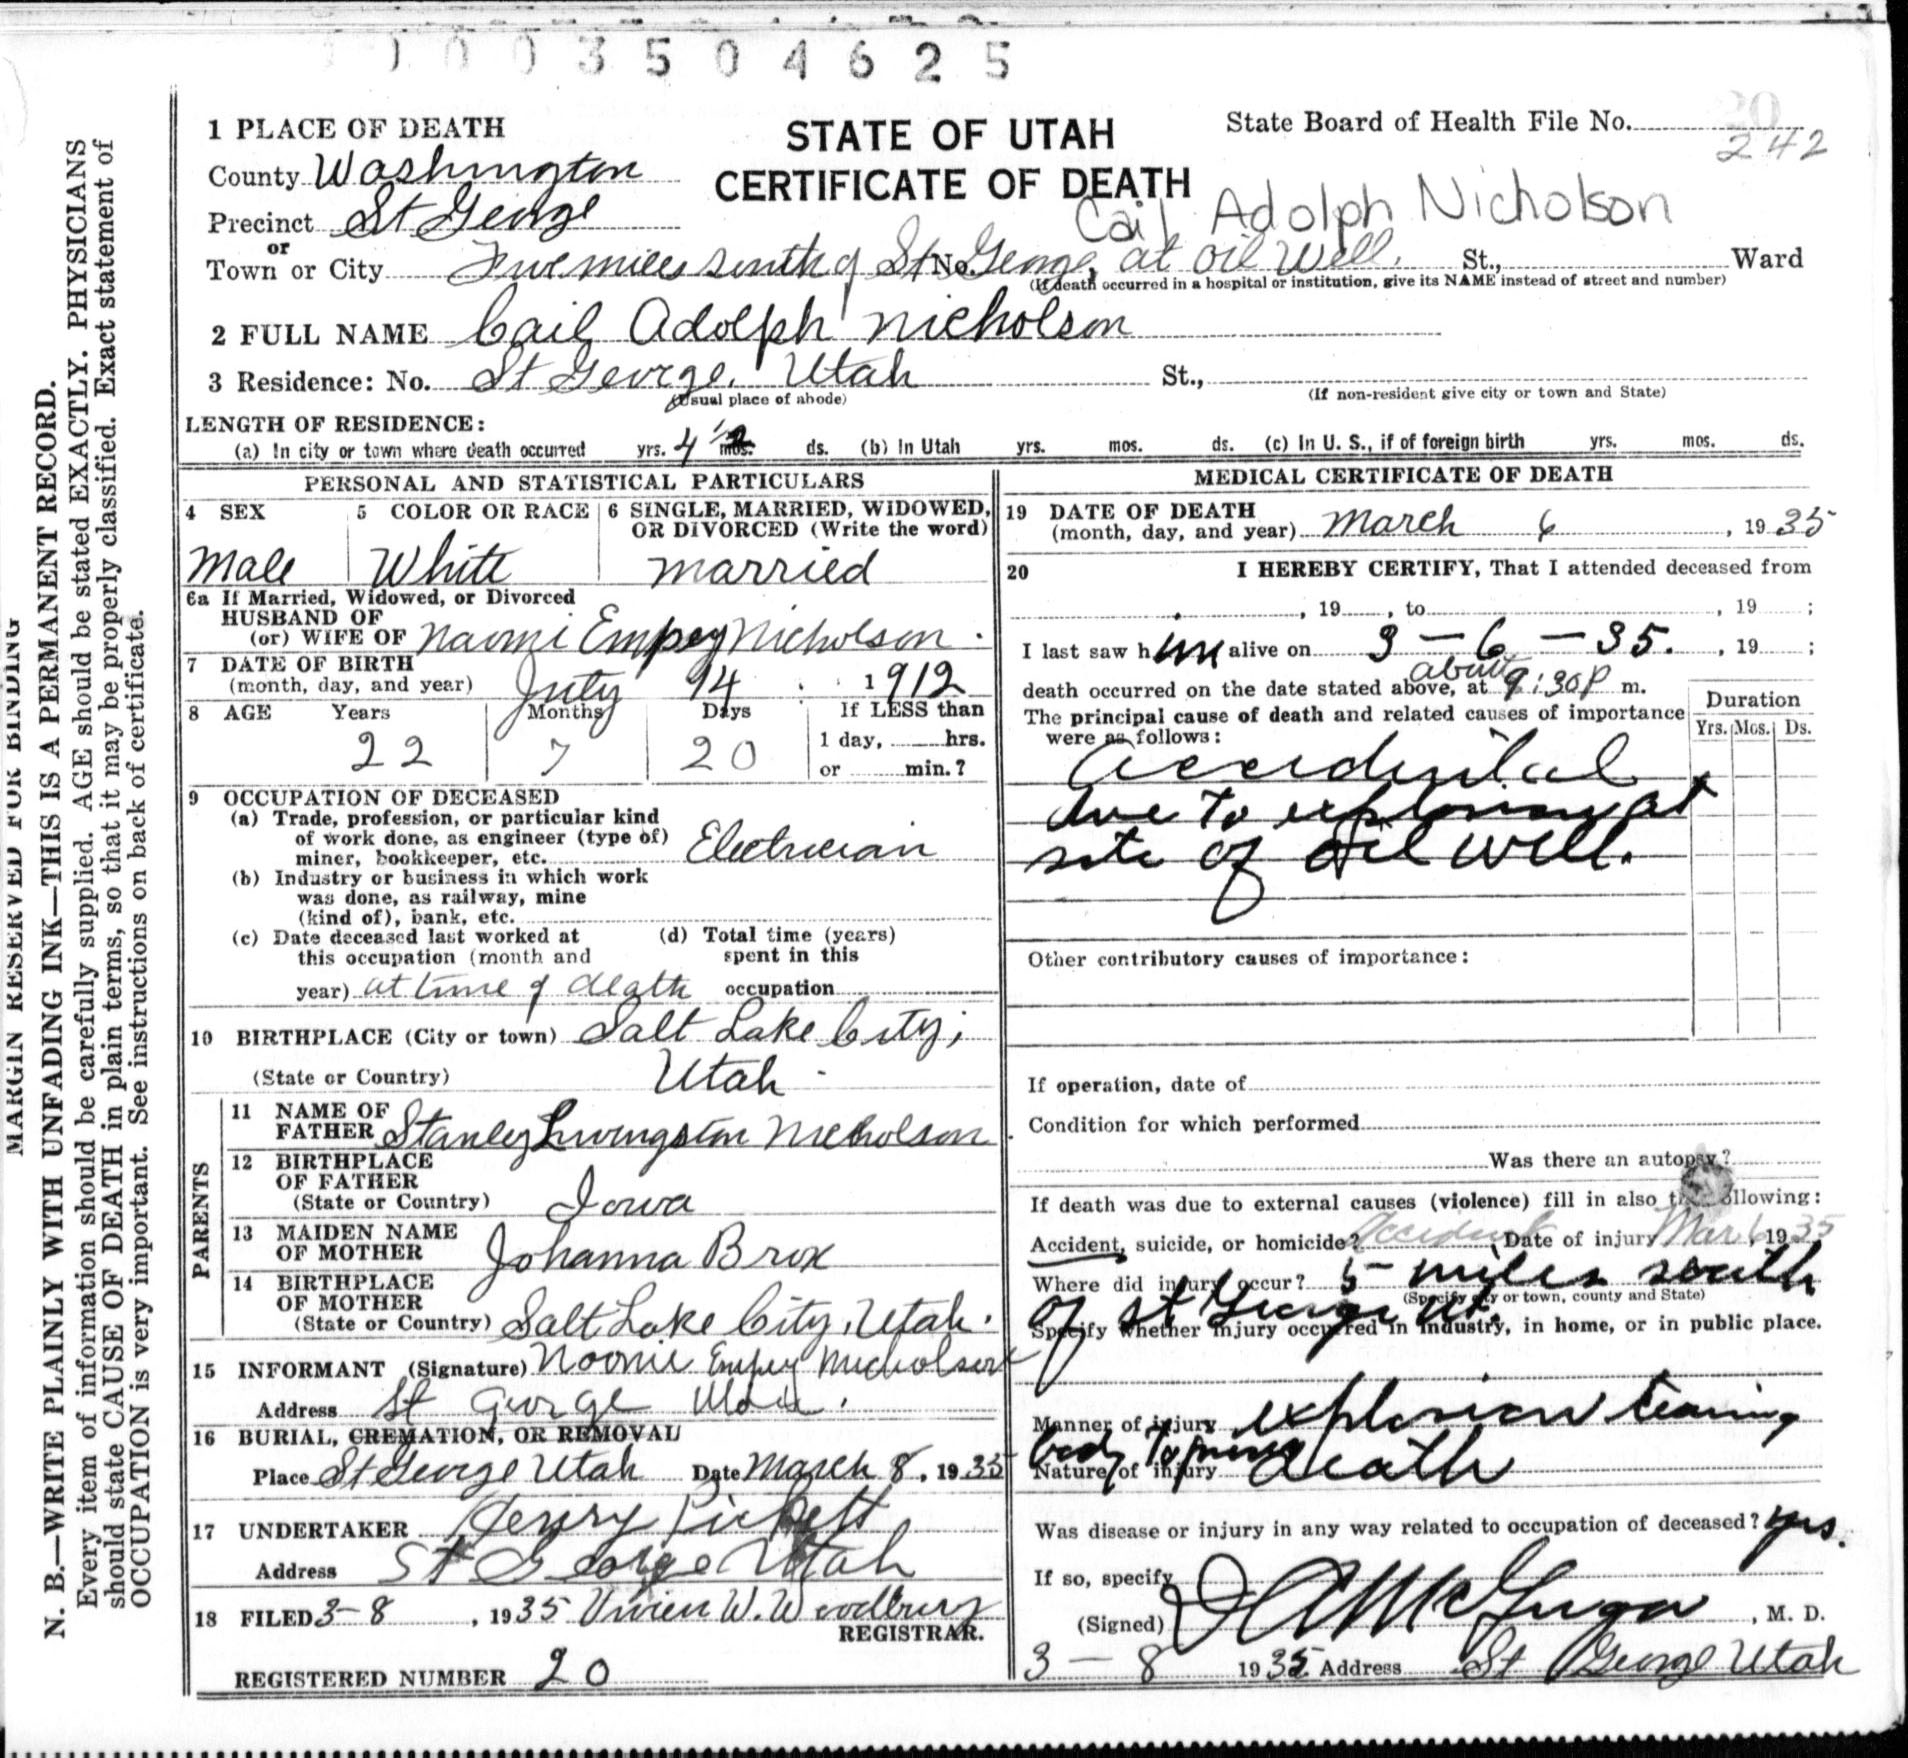 0 0 3 5 0 4 6 2 5
1 PLACE OF DEATH
STATE OF UTAH
CERTIFICATE OF DEATH
State Board of Health File No. 20
242
County Washington
Precinct St George
Cail Adolph Nicholson
or
Town or City Five miles south of St George, at oil Well. No. St., Ward
(If death occurred in a hospital or institution, give its NAME instead of street and number)
2 FULL NAME Cail Adolph Nicholson
3 Residence: No. St George, Utah St.,
(Usual place of abode) (If non-resident give city or town and State)
LENGTH OF RESIDENCE:
(a) In city or town where death occurred yrs. 4 1/2 mos. ds. (b) In Utah yrs. mos. ds. (c) In U. S., if of foreign birth yrs. mos. ds.
PERSONAL AND STATISTICAL PARTICULARS
4 SEX
Male
5 COLOR OR RACE
White
6 SINGLE, MARRIED, WIDOWED,
OR DIVORCED (Write the word)
married
6a If Married, Widowed, or Divorced
HUSBAND OF
(or) WIFE OF Naomi Empey Nicholson.
7 DATE OF BIRTH
(month, day, and year) July 14 1912
8 AGE Years Months Days If LESS than
22 7 20 1 day, hrs.
or min.?
9 OCCUPATION OF DECEASED
(a) Trade, profession, or particular kind
of work done, as engineer (type of)
miner, bookkeeper, etc. Electrician
(b) Industry or business in which work
was done, as railway, mine
(kind of), bank, etc.
(c) Date deceased last worked at
this occupation (month and
year) at time of death
(d) Total time (years)
spent in this
occupation
10 BIRTHPLACE (City or town) Salt Lake City;
(State or Country) Utah
PARENTS
11 NAME OF
FATHER Stanley Livingston Nicholson
12 BIRTHPLACE
OF FATHER
(State or Country) Iowa
13 MAIDEN NAME
OF MOTHER Johanna Brox
14 BIRTHPLACE
OF MOTHER
(State or Country) Salt Lake City, Utah.
15 INFORMANT (Signature) Empey Nicholson
Address St George Utah.
16 BURIAL, CREMATION, OR REMOVAL
Place St George Utah Date March 8, 1935
17 UNDERTAKER Henry Pickett
Address St George Utah
18 FILED 3-8, 1935 Vivien W. Woodbury
REGISTRAR.
REGISTERED NUMBER 20
MEDICAL CERTIFICATE OF DEATH
19 DATE OF DEATH
(month, day, and year) March 6, 1935
20 I HEREBY CERTIFY, That I attended deceased from
, 19 , to , 19 ;
I last saw him alive on 3-6-35. , 19 ;
death occurred on the date stated above, at about 9:30P m.
The principal cause of death and related causes of importance
were as follows:
Duration
Yrs. Mos. Ds.
accidental
due to explosion at
site of Oil well.
Other contributory causes of importance:
If operation, date of
Condition for which performed
Was there an autopsy?
If death was due to external causes (violence) fill in also the following:
Accident, suicide, or homicide? Accident Date of injury Mar 6, 1935
Where did injury occur? 5 miles south
(Specify city or town, county and State)
of St George Ut.
Specify whether injury occurred in industry, in home, or in public place.
Manner of injury explosion tearing
body to pieces
Nature of injury death
Was disease or injury in any way related to occupation of deceased? yes.
If so, specify
(Signed) McGregor, M. D.
3-8 1935 Address St George Utah
MARGIN RESERVED FOR BINDING
N. B.—WRITE PLAINLY WITH UNFADING INK—THIS IS A PERMANENT RECORD.
Every item of information should be carefully supplied. AGE should be stated EXACTLY. PHYSICIANS
should state CAUSE OF DEATH in plain terms, so that it may be properly classified. Exact statement of
OCCUPATION is very important. See instructions on back of certificate.